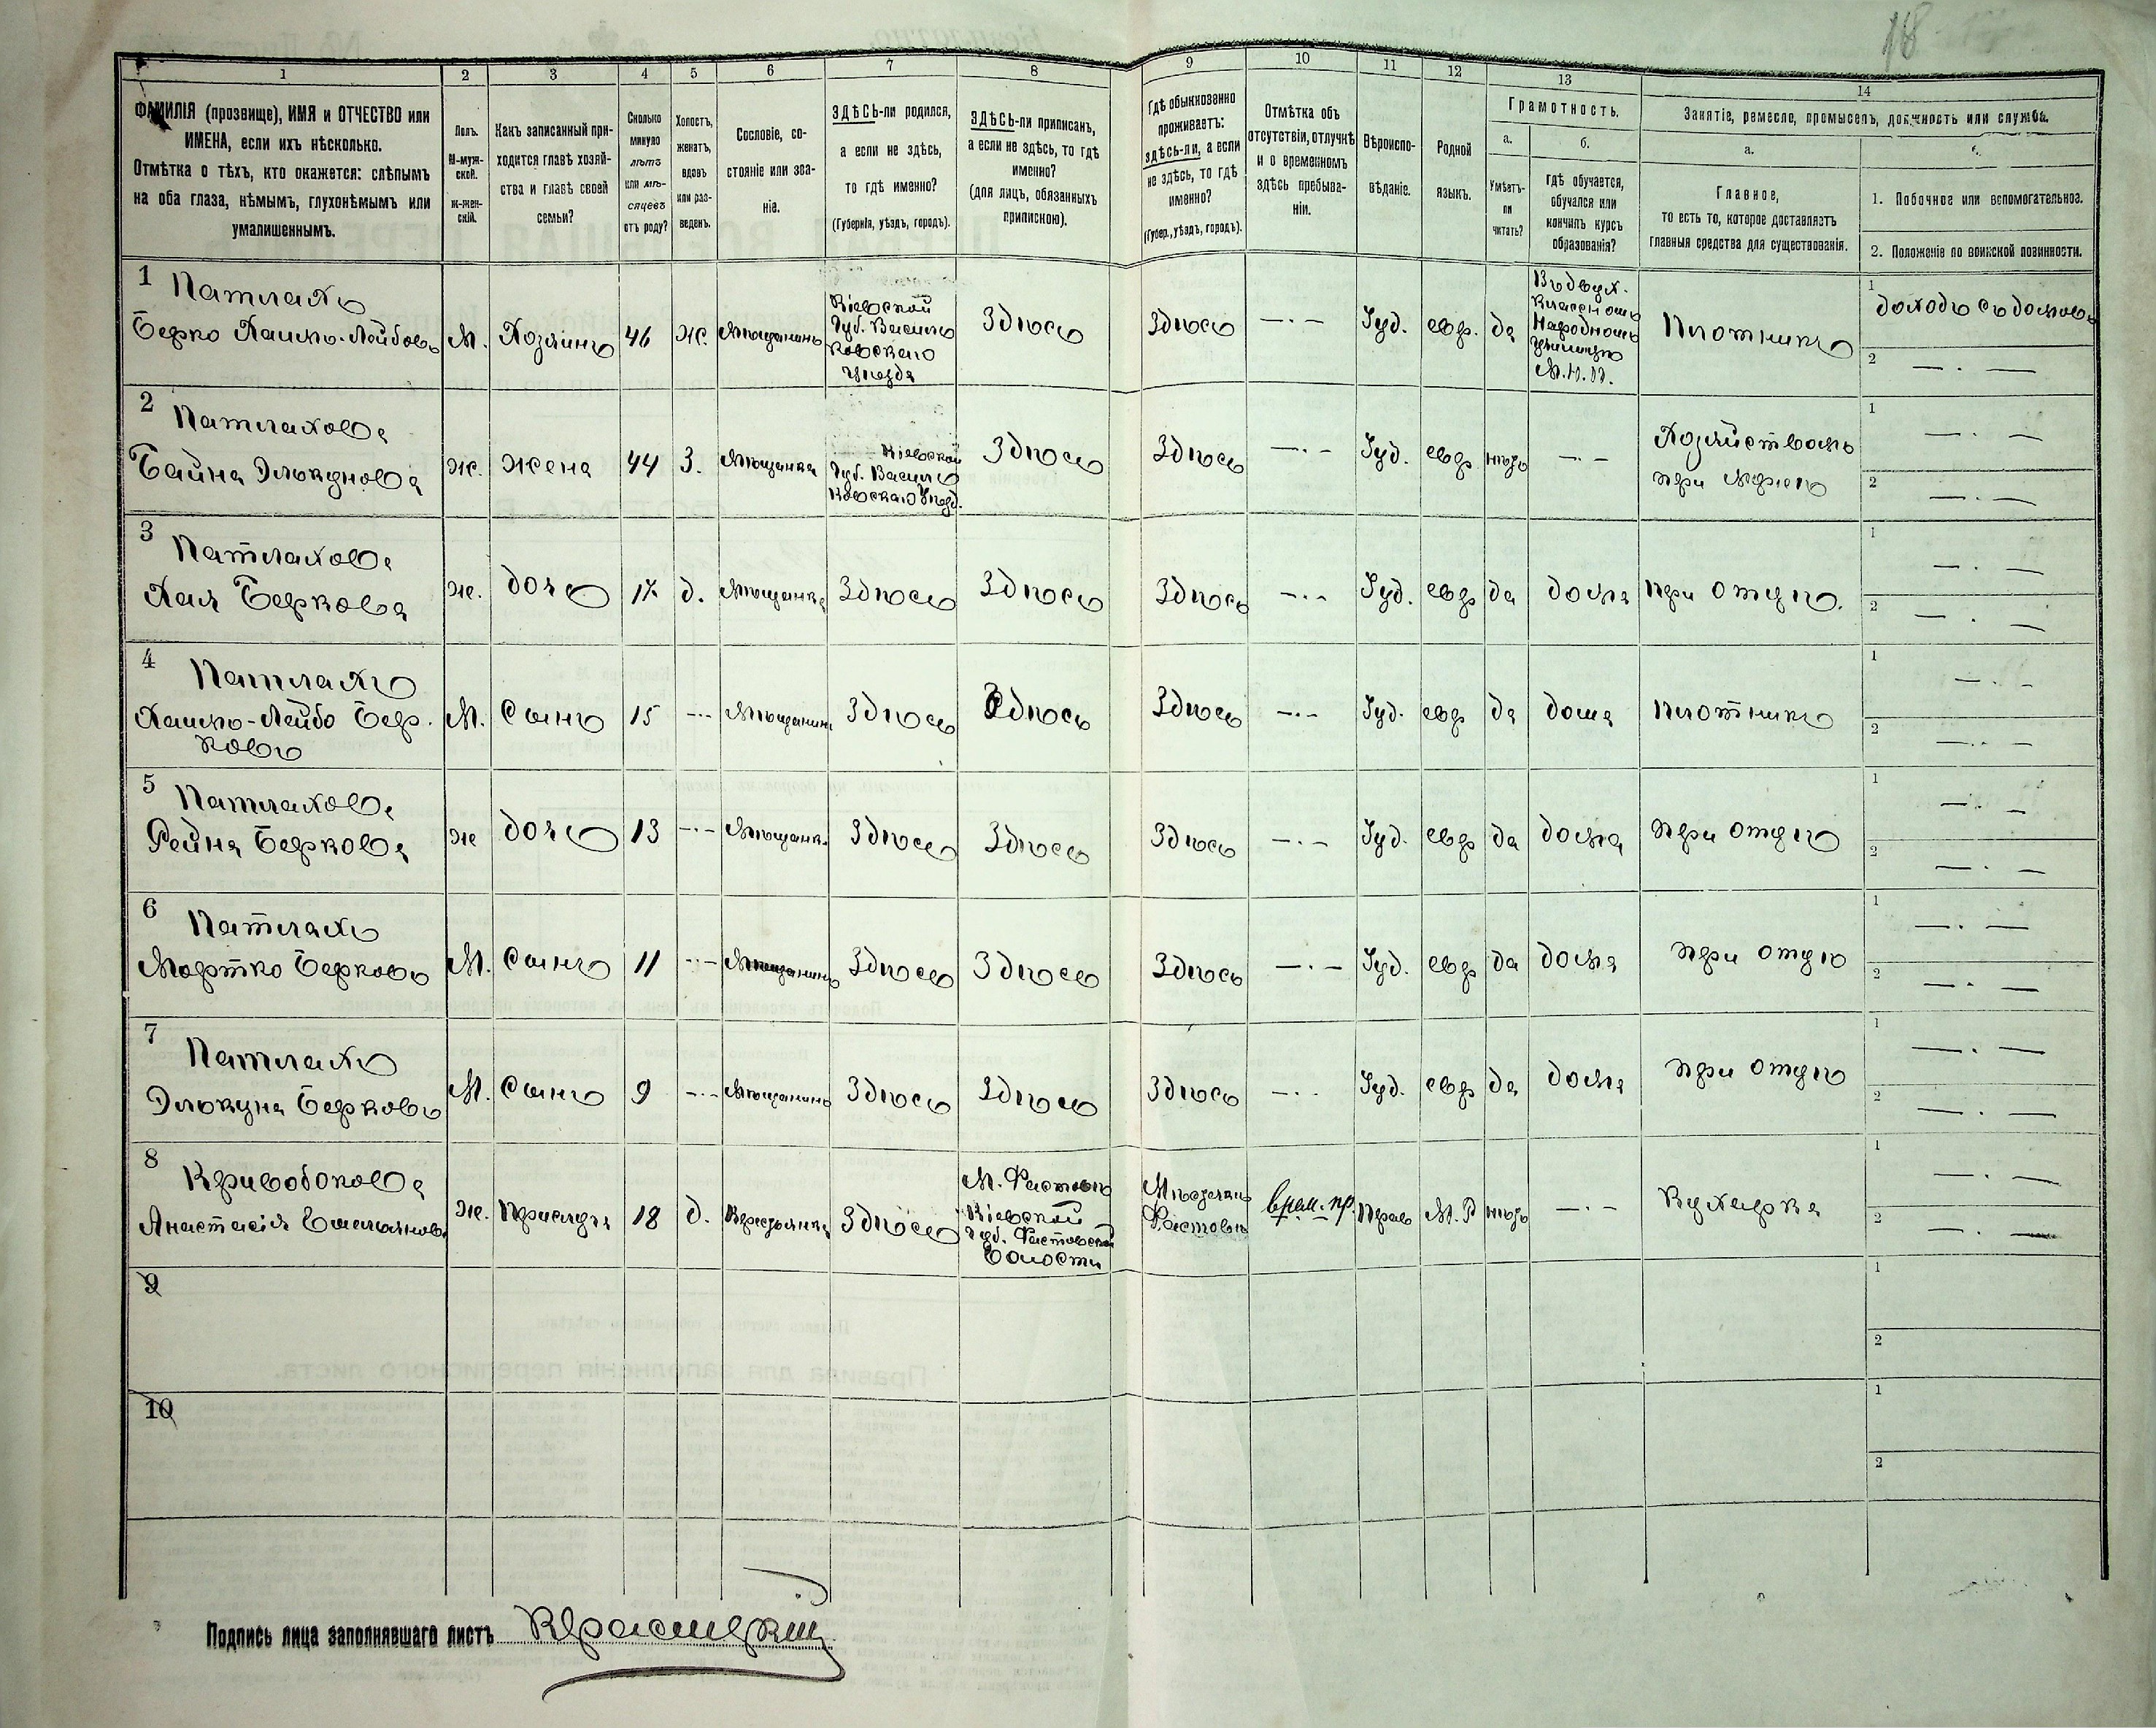 18
1
2
3
4
5
6
7
8
9
10
11
12
13
14
ФАМИЛІЯ (прозвище), ИМЯ и ОТЧЕСТВО или
ИМЕНА, если ихъ нѣсколько.
Отмѣтка о тѣхъ, кто окажется: слѣпымъ
на оба глаза, нѣмымъ, глухонѣмымъ или
умалишеннымъ.
Полъ.
М-муж-
ской.
Ж-жен-
скій.
Какъ записанный при-
ходится главѣ хозяй-
ства и главѣ своей
семьи?
Сколько
минуло
лѣтъ
или мѣ-
сяцевъ
отъ роду?
Холостъ,
женатъ,
вдовъ
или раз-
веденъ.
Сословіе, со-
стояніе или зва-
ніе.
ЗДѢСЬ-ли родился,
а если не здѣсь,
то гдѣ именно?
(Губернія, уѣздъ, городъ).
ЗДѢСЬ-ли приписанъ,
а если не здѣсь, то гдѣ
именно?
(для лицъ, обязанныхъ
припискою).
Гдѣ обыкновенно
проживаетъ:
здѣсь-ли, а если
не здѣсь, то гдѣ
именно?
(Губер., уѣздъ, городъ).
Отмѣтка объ
отсутствіи, отлучкѣ
и о временномъ
здѣсь пребыва-
ніи.
Вѣроиспо-
вѣданіе.
Родной
языкъ.
Грамотность.
а.
Умѣетъ-
ли
читать?
б.
гдѣ обучается,
обучался или
кончилъ курсъ
образованія?
Занятіе, ремесло, промыселъ, должность или служба.
а.
Главное,
то есть то, которое доставляетъ
главныя средства для существованія.
б.
1. Побочное или вспомогательное.
2. Положеніе по воинской повинности.
1 Патлахъ
Берко Хаимъ-Лейбовъ
М.
Хозяинъ
46
Ж.
Мѣщанинъ
Кіевской
Губ. Василь
ковскаго
уѣзда
Здѣсь
Здѣсь
—·—
Іуд.
евр.
да
Въ двух.
классномъ
Народномъ
училищѣ
М.Н.П.
Плотникъ
1 доходъ съ домовъ
2 —·—
2 Патлахова
Байна Элькунова
Ж.
Жена
44
З.
Мѣщанка
Кіевской
Губ. Василь
ковскаго Уѣзд.
Здѣсь
Здѣсь
—·—
Іуд.
евр
нѣтъ
—·—
Хозяйствомъ
при мужѣ
1 —·—
2 —·—
3 Патлахова
Хая Беркова
Ж.
дочь
17
д.
Мѣщанка
Здѣсь
Здѣсь
Здѣсь
—·—
Іуд.
евр
да
дома
при отцѣ.
1 —·—
2 —·—
4 Патлахъ
Хаимъ-Лейбо Бер.
ковъ
М.
Сынъ
15
—·—
Мѣщанинъ
Здѣсь
Здѣсь
Здѣсь
—·—
Іуд.
евр
да
дома
плотникъ
1 —·—
2 —·—
5 Патлахова
Рейна Беркова
Ж
дочь
13
—·—
Мѣщанка
Здѣсь
Здѣсь
Здѣсь
—·—
Іуд.
евр
да
дома
при отцѣ
1 —·—
2 —·—
6 Патлахъ
Мортко Берковъ
М.
Сынъ
11
—·—
Мѣщанинъ
Здѣсь
Здѣсь
Здѣсь
—·—
Іуд.
евр
да
дома
при отцѣ
1 —·—
2 —·—
7 Патлахъ
Элькуна Берковъ
М.
Сынъ
9
—·—
Мѣщанинъ
Здѣсь
Здѣсь
Здѣсь
—·—
Іуд.
евр
да
дома
при отцѣ
1 —·—
2 —·—
8 Кривобокова
Анастасія Емельянова
Ж.
Прислуга
18
д.
Крестьянка
Здѣсь
М. Фастовъ
Кіевской
губ. Фастовской
Волости
Мѣстечко
Фастовъ
врем. пр.
Прав
М.Р
нѣтъ
—·—
Кухарка
1 —·—
2 —·—
9
1
2
10
1
2
Подпись лица заполнявшаго листъ